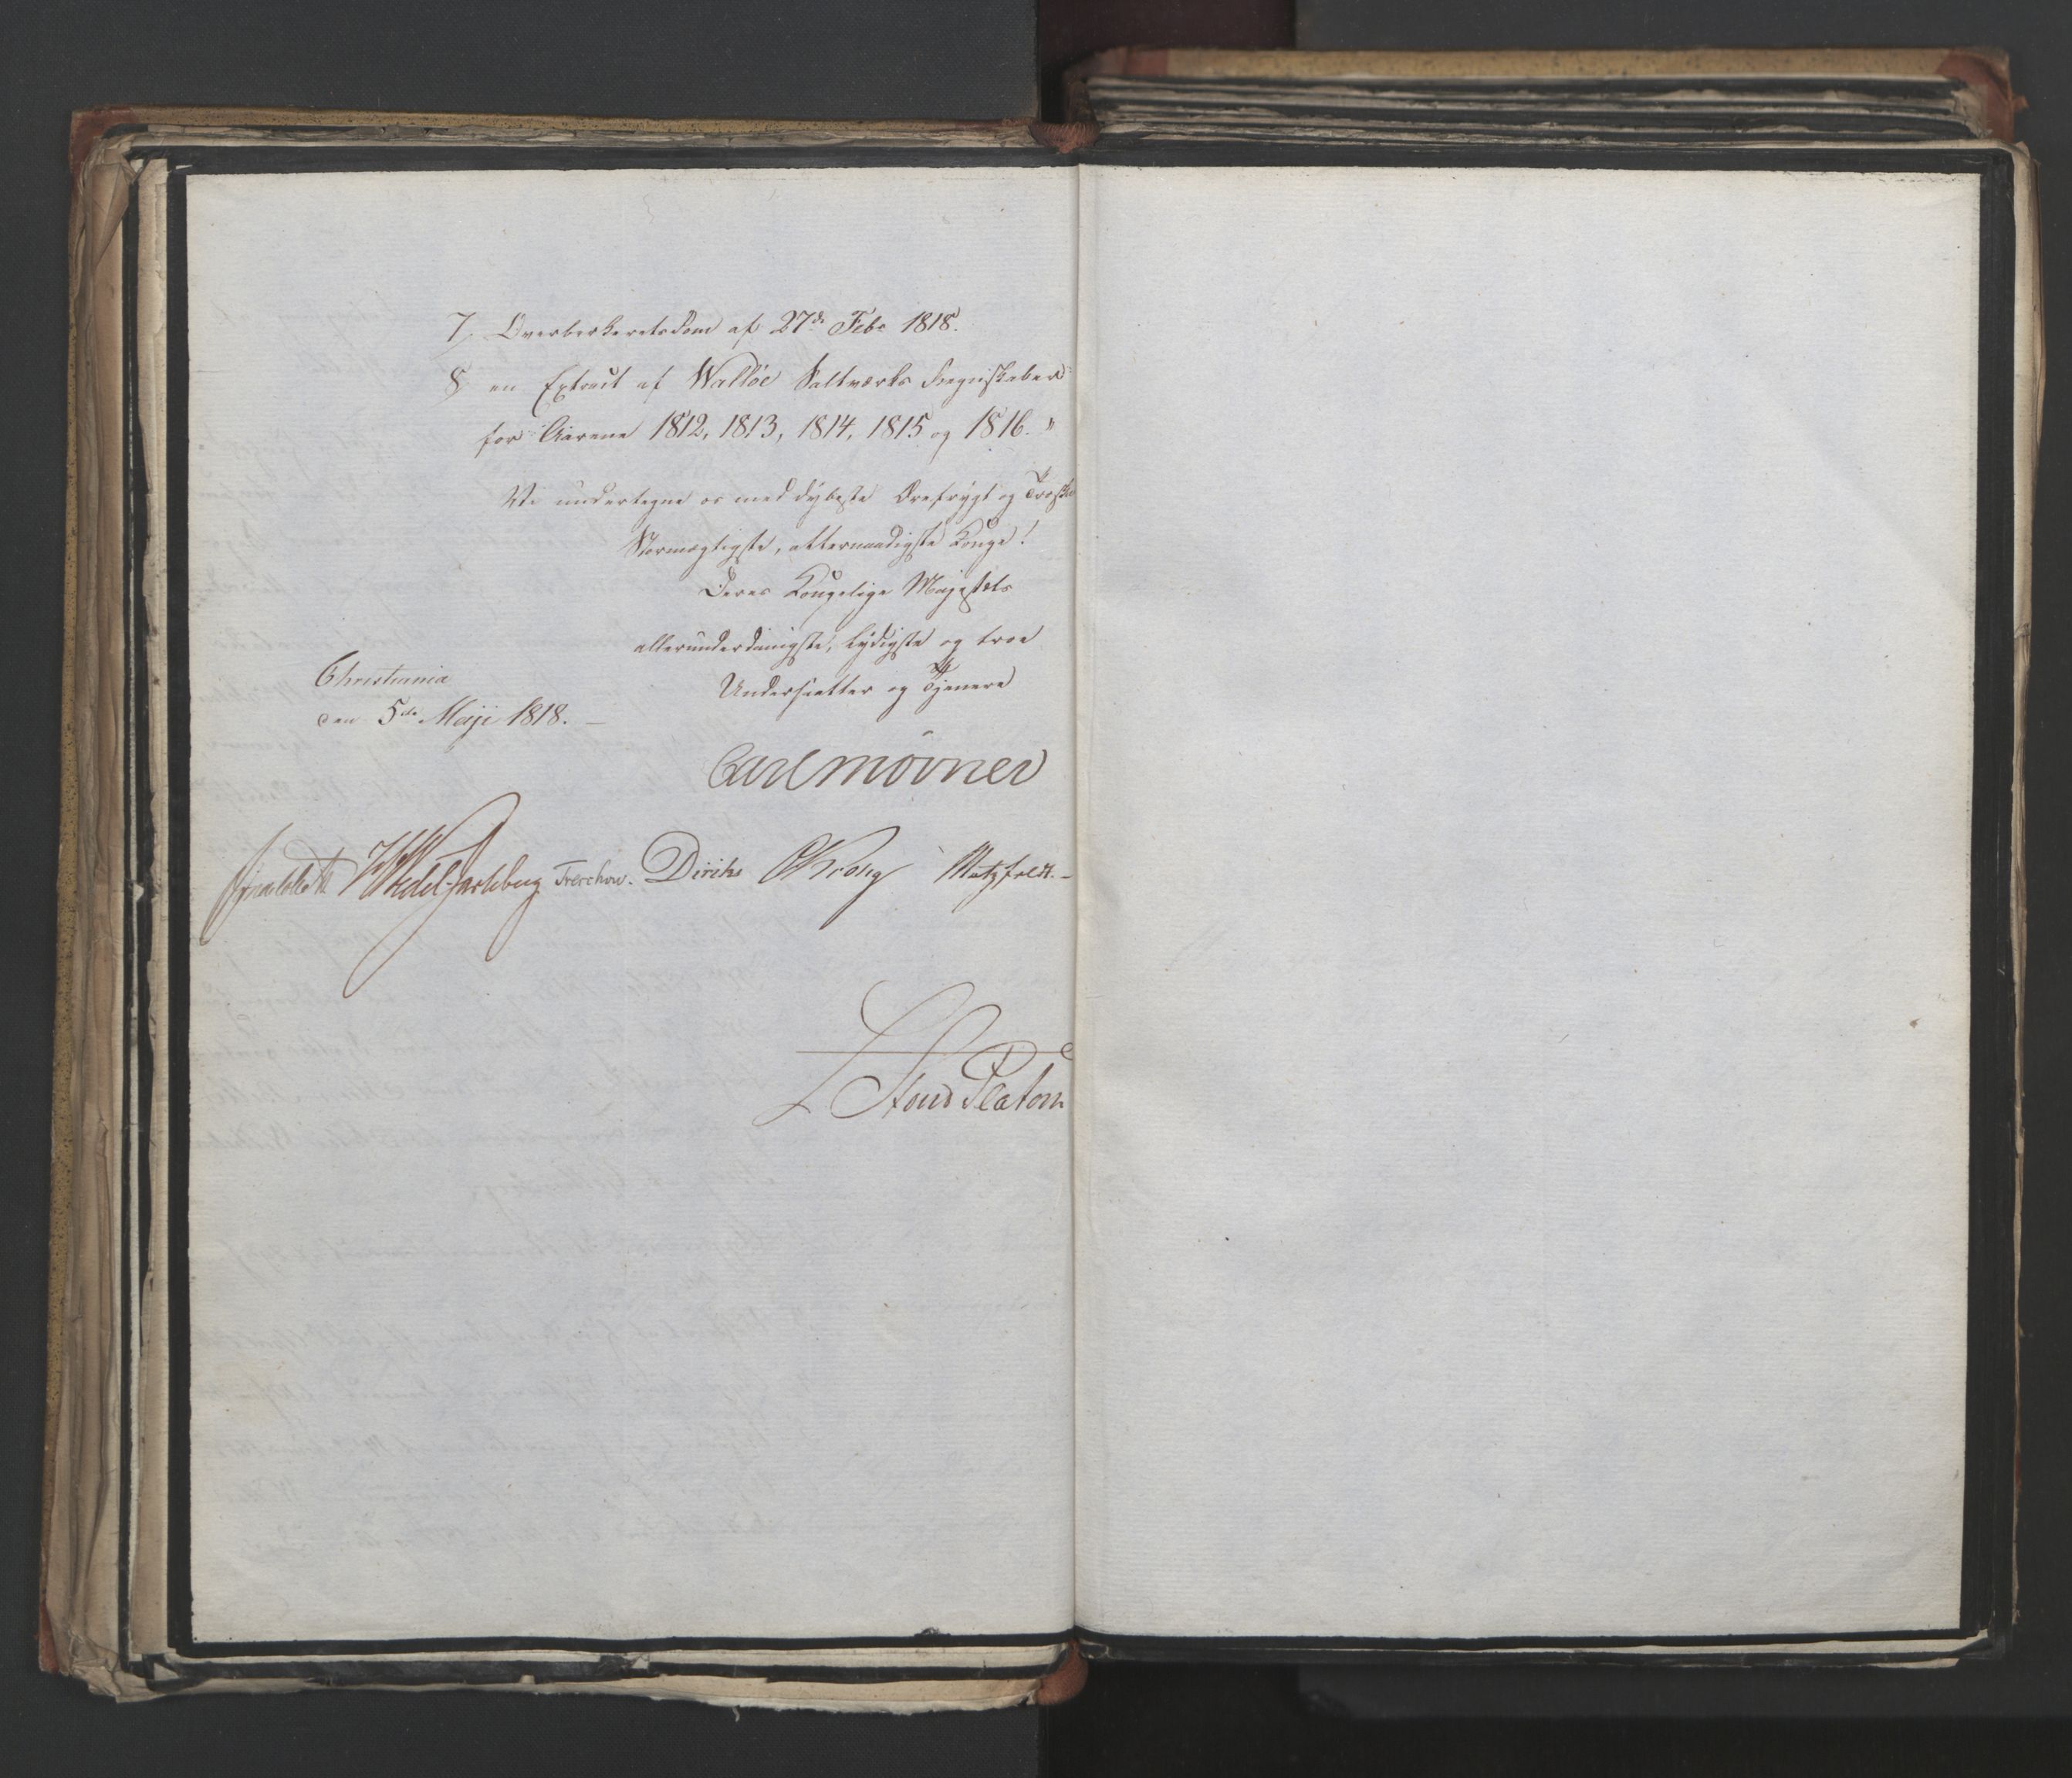 7, Overberkeretsdom af 27de Febr 1818.
8 en Extract af Walløe Saltværks Regnskaber
for Aarene 1812, 1813, 1814, 1815 og 1816. "
Vi undertegne os med dybeste Ærefrygt og Troskab
Stormægtigste, allernaadigste Konge!
Deres Kongelige Majestæts
allerunderdanigste, lydigste og troe
Undersaatter og Tjenere
Christiania
den 5de Maji 1818. —
Carl Mörner
JHWedel Jarlsberg Treschow. Diriks CKrohg Motzfeldt. —
L Stoud Platou